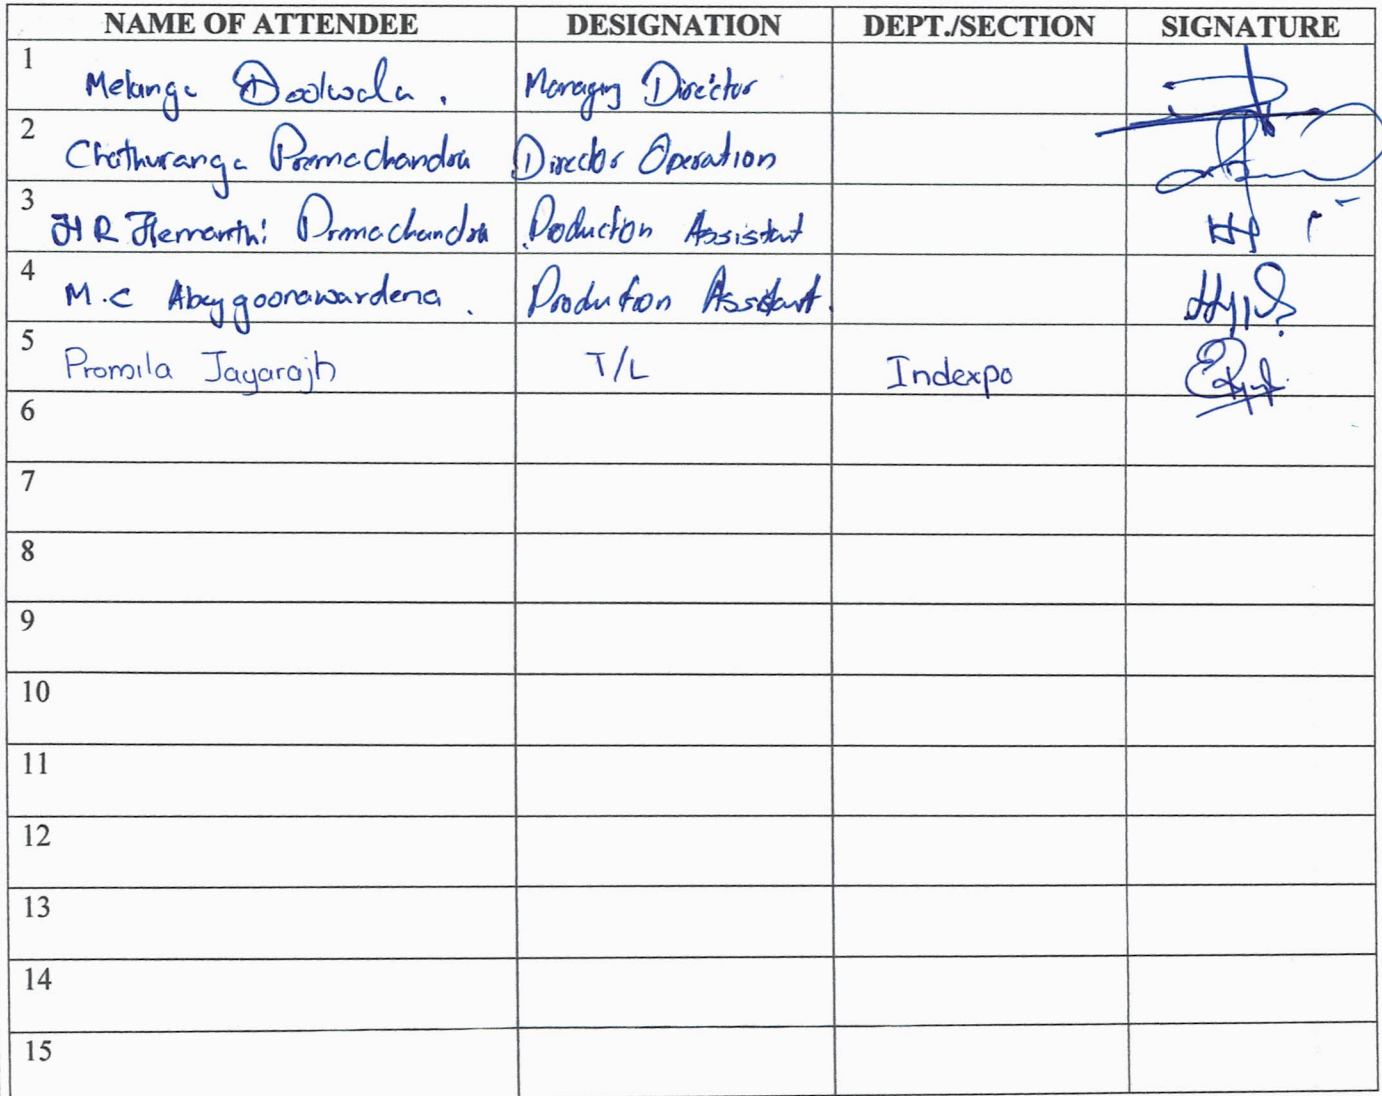 NAME OF ATTENDEE DESIGNATION DEPT./SECTION SIGNATURE
1 Melanga Doolwala . Managing Director
2 Chathuranga Premachandra Director Operation
3 H R Hemanthi Premachandra Production Assistant
4 M.C Abeygoonawardena . Production Assistant.
5 Promila Jayarajh T/L Indexpo
6
7
8
9
10
11
12
13
14
15